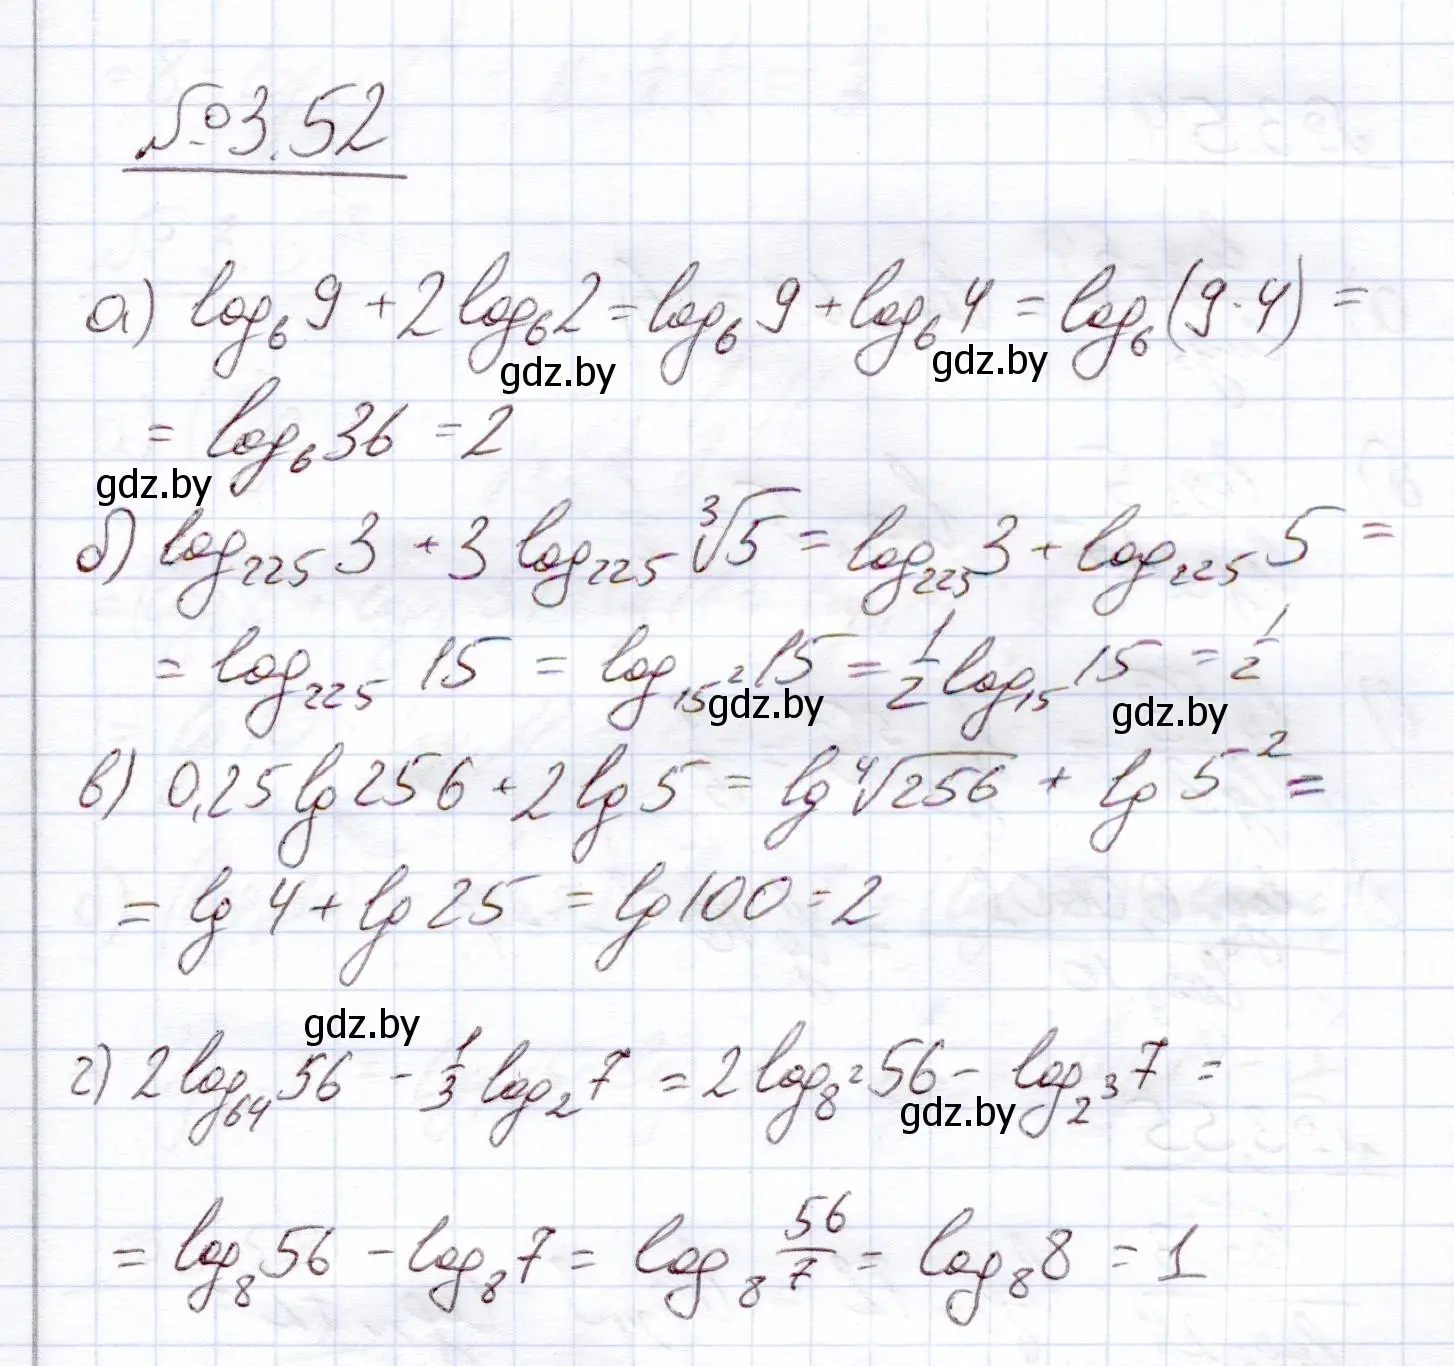 №3.52
а) log₆ 9 + 2 log₆ 2 = log₆ 9 + log₆ 4 = log₆ (9·4) =
gdz.by gdz.by
= log₆ 36 = 2
gdz.by
б) log₂₂₅ 3 + 3 log₂₂₅ ∛5 = log₂₂₅ 3 + log₂₂₅ 5 =
= log₂₂₅ 15 = log₁₅² 15 = 1/2 log₁₅ 15 = 1/2
gdz.by gdz.by
в) 0,25 lg 256 + 2 lg 5 = lg ∜256 + lg 5² =
= lg 4 + lg 25 = lg 100 = 2
gdz.by
г) 2 log₆₄ 56 - 1/3 log₂ 7 = 2 log₈² 56 - log₂³ 7 =
gdz.by
= log₈ 56 - log₈ 7 = log₈ 56/7 = log₈ 8 = 1